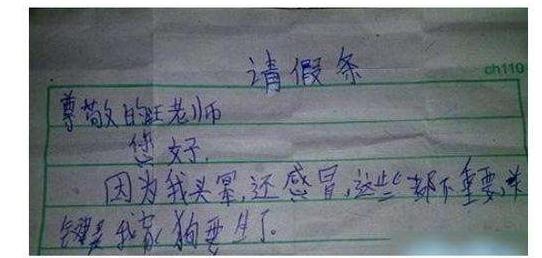 请假条
ch110
尊敬的旺老师
您好.
因为我头晕,还感冒,这些都不重要,关
键是我家狗要生了.